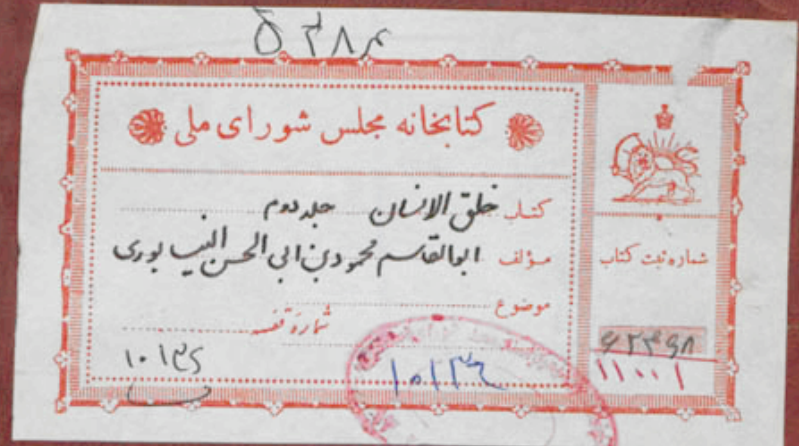 ۵۳۸۴
کتابخانه مجلس شورای ملی
کتاب خلق الانسان جلد دوم
مؤلف ابوالقاسم محمود بن ابی الحسن النیسابوری
موضوع
شماره قفسه
شماره ثبت کتاب
۱۱۰۰۱